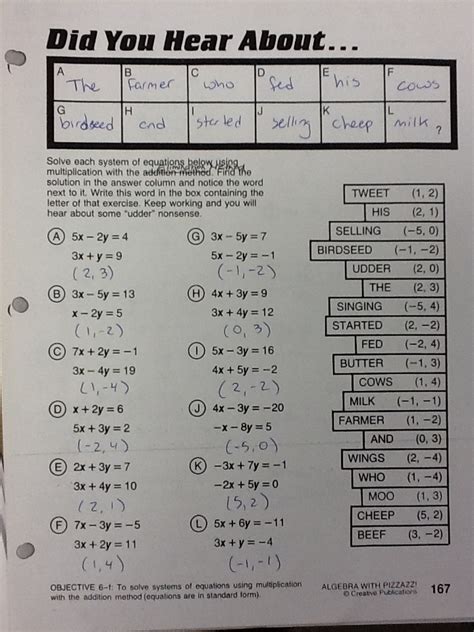 Did You Hear About...
A The B Farmer C who D fed E his F cows
G birdseed H and I started J selling K cheep L milk ?
Solve each system of equations below using
multiplication with the addition method. Find the
solution in the answer column and notice the word
next to it. Write this word in the box containing the
letter of that exercise. Keep working and you will
hear about some "udder" nonsense.
A 5x − 2y = 4
3x + y = 9
(2, 3)
B 3x − 5y = 13
x − 2y = 5
(1, -2)
C 7x + 2y = −1
3x − 4y = 19
(1, -4)
D x + 2y = 6
5x + 3y = 2
(-2, 4)
E 2x + 3y = 7
3x + 4y = 10
(2, 1)
F 7x − 3y = −5
3x + 2y = 11
(1, 4)
G 3x − 5y = 7
5x − 2y = −1
(-1, -2)
H 4x + 3y = 9
3x + 4y = 12
(0, 3)
I 5x − 3y = 16
4x + 5y = −2
(2, -2)
J 4x − 3y = −20
−x − 8y = 5
(-5, 0)
K −3x + 7y = −1
−2x + 5y = 0
(5, 2)
L 5x + 6y = −11
3x + y = −4
(-1, -1)
TWEET (1, 2)
HIS (2, 1)
SELLING (−5, 0)
BIRDSEED (−1, −2)
UDDER (2, 0)
THE (2, 3)
SINGING (−5, 4)
STARTED (2, −2)
FED (−2, 4)
BUTTER (−1, 3)
COWS (1, 4)
MILK (−1, −1)
FARMER (1, −2)
AND (0, 3)
WINGS (2, −4)
WHO (1, −4)
MOO (1, 3)
CHEEP (5, 2)
BEEF (3, −2)
OBJECTIVE 6–f: To solve systems of equations using multiplication
with the addition method (equations are in standard form).
ALGEBRA WITH PIZZAZZ!
© Creative Publications
167